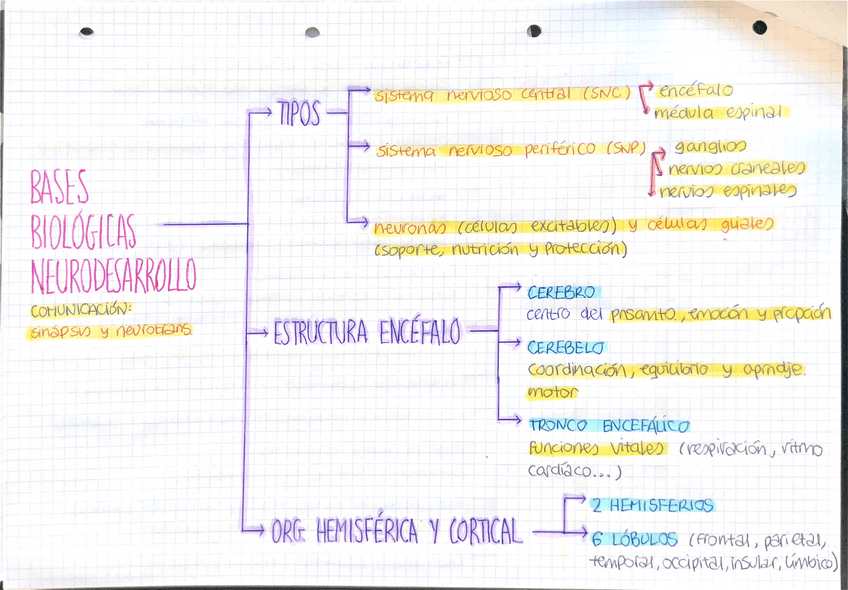 BASES
BIOLÓGICAS
NEURODESARROLLO
COMUNICACIÓN:
sinapsis y neurotrans.
TIPOS
sistema nervioso central (SNC)
encéfalo
médula espinal
sistema nervioso periférico (SNP)
ganglios
nervios craneales
nervios espinales
neuronas (células excitables) y células gliales
(soporte, nutrición y protección)
ESTRUCTURA ENCÉFALO
CEREBRO
centro del pnsamto., emoción y
CEREBELO
coordinación, equilibrio y aprndje.
motor
TRONCO ENCEFÁLICO
funciones vitales (respiración, ritmo
cardíaco...)
ORG. HEMISFÉRICA Y CORTICAL
2 HEMISFERIOS
6 LÓBULOS (frontal, parietal,
temporal, occipital, insular, límbico)